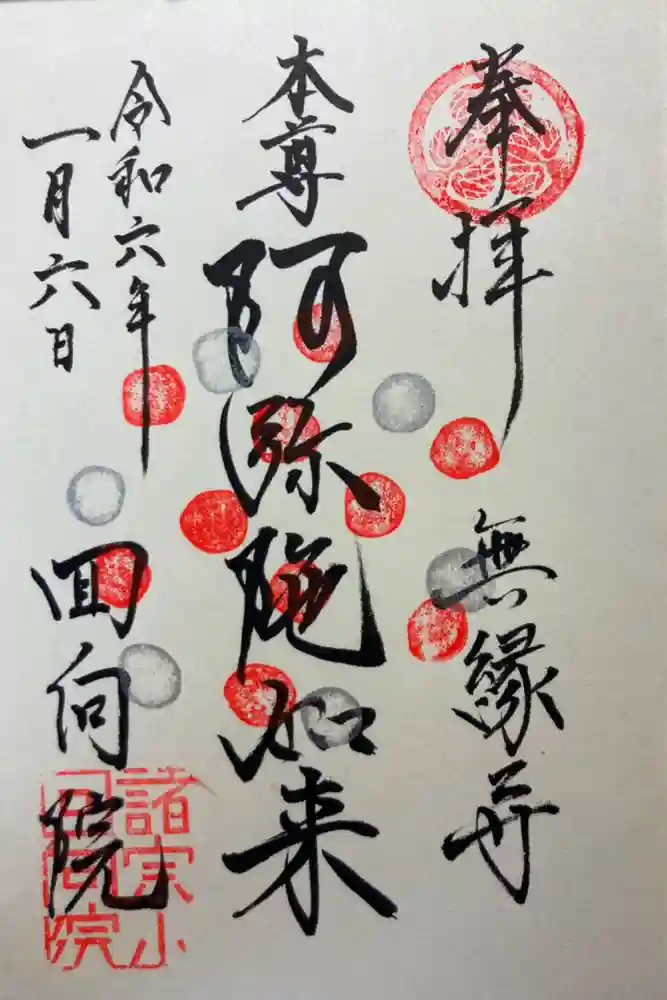 奉拝
無縁寺
本尊
阿弥陀如来
令和六年
一月六日
回向院
諸宗山
回向院